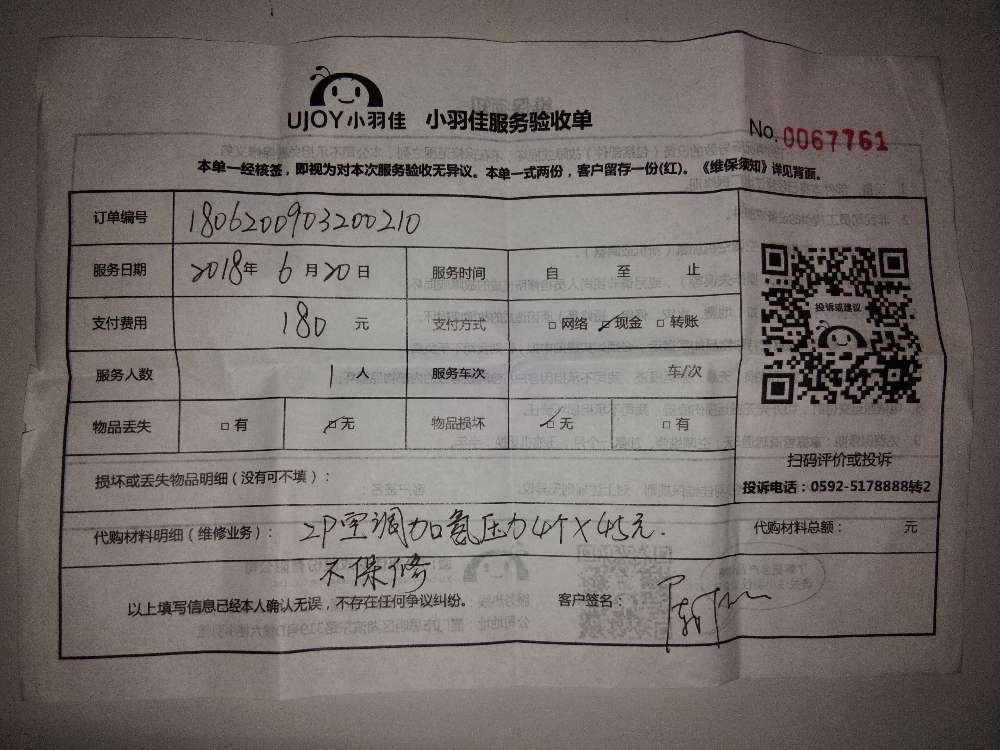 UJOY小羽佳 小羽佳服务验收单
No. 0067761
本单一经核签，即视为对本次服务验收无异议。本单一式两份，客户留存一份(红)。《维保须知》详见背面。
订单编号 1806200903200210
服务日期 2018年 6月20日 服务时间 自 至 止
支付费用 180 元 支付方式 □网络 ☑现金 □转账
服务人数 1人 服务车次 车/次
物品丢失 □有 ☑无 物品损坏 ☑无 □有
投诉或建议
扫码评价或投诉
投诉电话：0592-5178888转2
损坏或丢失物品明细（没有可不填）：
代购材料明细（维修业务）： 2P空调加氨压力4个X45元.
不保修
代购材料总额： 元
以上填写信息已经本人确认无误，不存在任何争议纠纷。 客户签名：